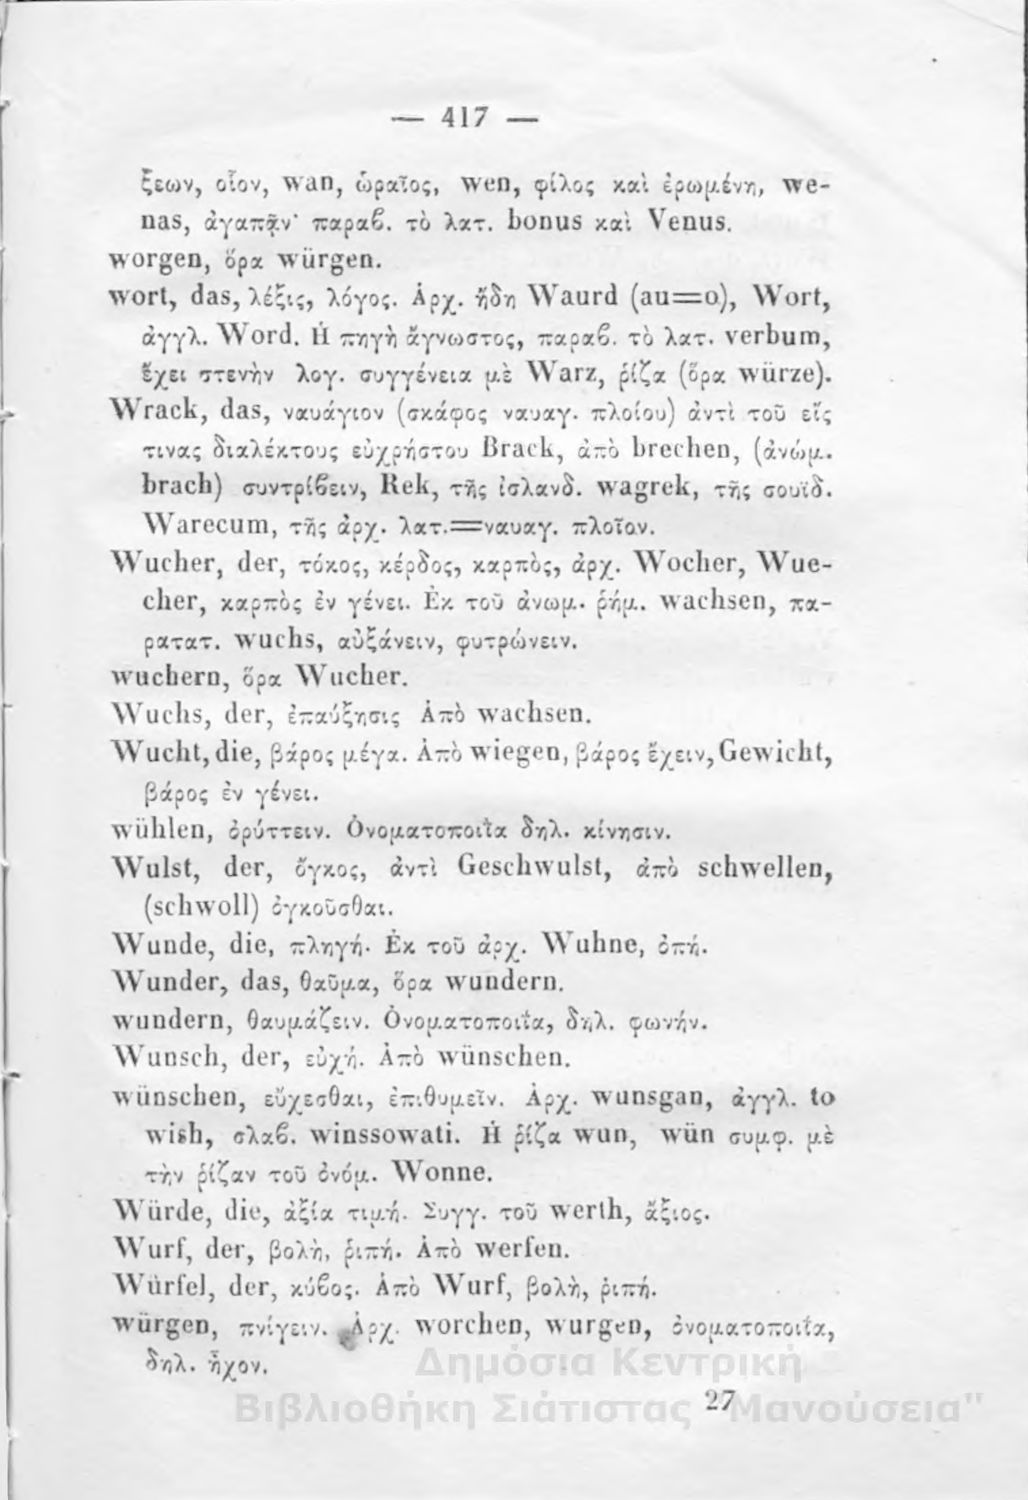 — 417 —
ξεων, οἷον, wan, ὡραῖος, wen, φίλος καὶ ἐρωμένη, we-
nas, ἀγαπᾷν· παραϐ. τὸ λατ. bonus καὶ Venus.
worgen, ὅρα würgen.
wort, das, λέξις, λόγος. Ἀρχ. ἤδη Waurd (au=o), Wort,
ἀγγλ. Word. Ἡ πηγὴ ἄγνωστος, παραϐ. τὸ λατ. verbum,
ἔχει στενὴν λογ. συγγένεια μὲ Warz, ῥίζα (ὅρα würze).
Wrack, das, ναυάγιον (σκάφος ναυαγ. πλοίου) ἀντὶ τοῦ εἴς
τινας διαλέκτους εὐχρήστου Brack, ἀπὸ brechen, (ἀνώμ.
brach) συντρίϐειν, Rek, τῆς ἰσλανδ. wagrek, τῆς σουϊδ.
Warecum, τῆς ἀρχ. λατ.=ναυαγ. πλοῖον.
Wucher, der, τόκος, κέρδος, καρπὸς, ἀρχ. Wocher, Wue-
cher, καρπὸς ἐν γένει. Ἐκ τοῦ ἀνωμ. ῥήμ. wachsen, πα-
ρατατ. wuchs, αὐξάνειν, φυτρώνειν.
wuchern, ὅρα Wucher.
Wuchs, der, ἐπαύξησις Ἀπὸ wachsen.
Wucht, die, βάρος μέγα. Ἀπὸ wiegen, βάρος ἔχειν, Gewicht,
βάρος ἐν γένει.
wühlen, ὀρύττειν. Ὀνοματοποιΐα δηλ. κίνησιν.
Wulst, der, ὄγκος, ἀντὶ Geschwulst, ἀπὸ schwellen,
(schwoll) ὀγκοῦσθαι.
Wunde, die, πληγή. Ἐκ τοῦ ἀρχ. Wuhne, ὀπή.
Wunder, das, θαῦμα, ὅρα wundern.
wundern, θαυμάζειν. Ὀνοματοποιΐα, δηλ. φωνήν.
Wunsch, der, εὐχή. Ἀπὸ wünschen.
wünschen, εὔχεσθαι, ἐπιθυμεῖν. Ἀρχ. wunsgan, ἀγγλ. to
wish, σλαϐ. winssowati. Ἡ ῥίζα wun, wün συμφ. μὲ
τὴν ῥίζαν τοῦ ὀνόμ. Wonne.
Würde, die, ἀξία τιμή. Συγγ. τοῦ werth, ἄξιος.
Wurf, der, βολὴ, ῥιπή. Ἀπὸ werfen.
Würfel, der, κύϐος. Ἀπὸ Wurf, βολὴ, ῥιπή.
würgen, πνίγειν. Ἀρχ. worchen, wurgen, ὀνοματοποιΐα,
δηλ. ἦχον.
27
Δημόσια Κεντρική
Βιβλιοθήκη Σιάτιστας "Μανούσεια"